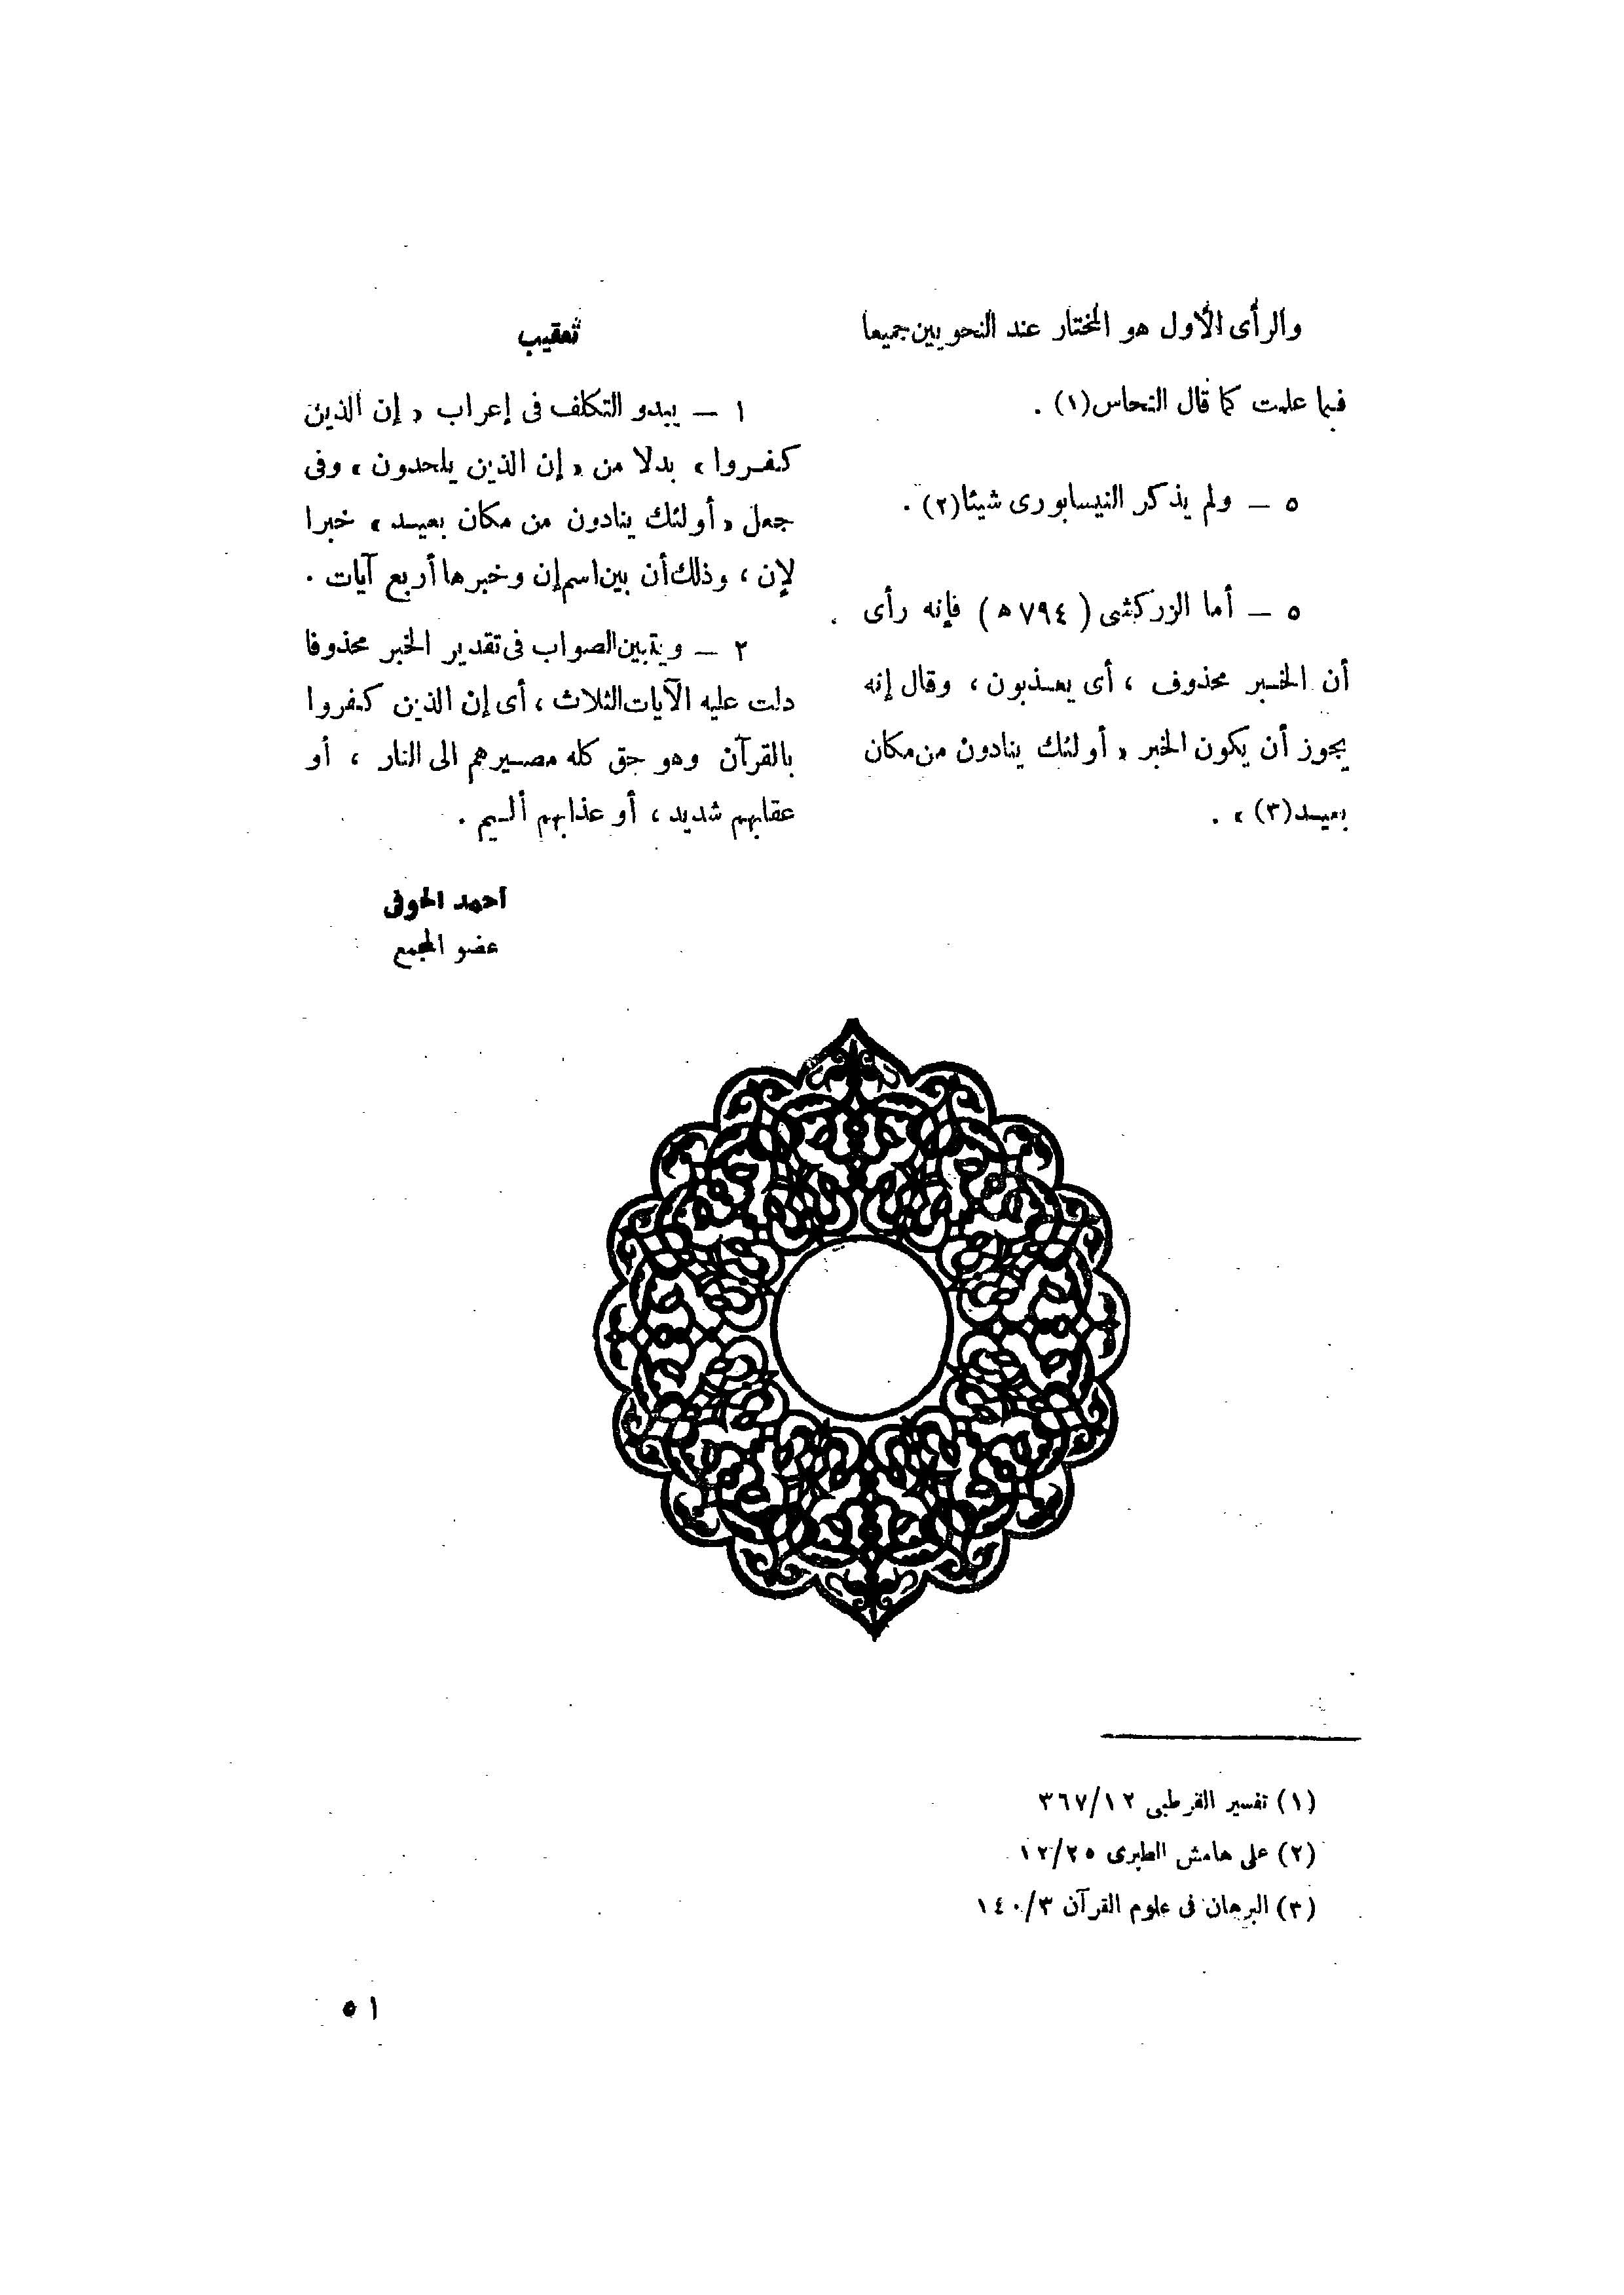 والرأى الأول هو المختار عند النحويين جميعا
فيما علمت كما قال النحاس(١) .
٥ – ولم يذكر النيسابورى شيئا(٢) .
٥ – أما الزركشى ( ٧٩٤ ه ) فإنه رأى
أن الخبر محذوف ، أى يعذبون ، وقال إنه
يجوز أن يكون الخبر « أولئك ينادون من مكان
بعيد(٣) » .
تعقيب
١ – يبدو التكلف فى إعراب « إن الذين
كفروا » بدلا من « إن الذين يلحدون » وفى
جعل « أولئك ينادون من مكان بعيد » خبرا
لإن ، وذلك أن بين اسم إن وخبرها أربع آيات .
٢ – ويتبين الصواب فى تقدير الخبر محذوفا
دلت عليه الآيات الثلاث ، أى إن الذين كفروا
بالقرآن وهو حق كله مصيرهم الى النار ، أو
عقابهم شديد ، أو عذابهم أليم .
أحمد الحوفى
عضو المجمع
(١) تفسير القرطبى ٣٦٧/١٢
(٢) على هامش الطبرى ١٢/٢٥
(٣) البرهان فى علوم القرآن ١٤٠/٣
٥١